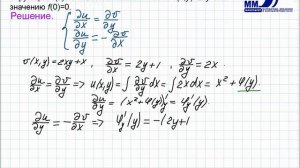 значению f(0)=0
ММ
Решение.
{ ∂u/∂x = ∂v/∂y
∂u/∂y = -∂v/∂x
v(x,y) = 2xy+x, ∂v/∂x = 2y+1, ∂v/∂y = 2x.
∂u/∂x = ∂v/∂y => u(x,y) = ∫ ∂v/∂y dx = ∫ 2x dx = x² + φ(y)
∂u/∂y = (x²+φ(y))'y = φ'y(y)
∂u/∂y = -∂v/∂x => φ'y(y) = -(2y+1